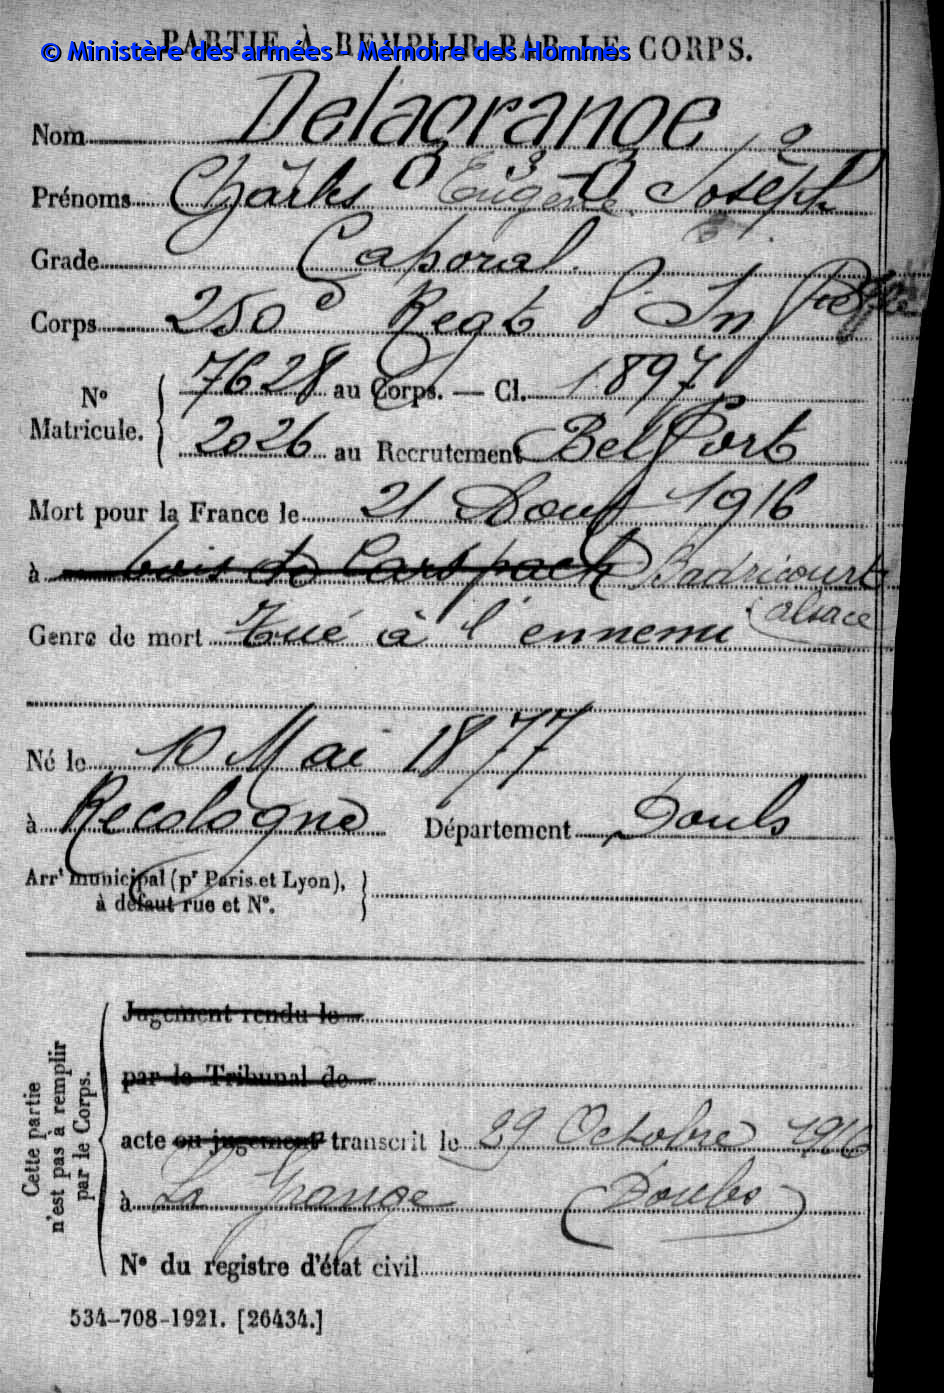 PARTIE À REMPLIR PAR LE CORPS.
© Ministère des armées - Mémoire des Hommes
Nom Delagrange
Prénoms Charles Eugène Joseph
3 2
Grade Caporal
Corps 250e Regt d'Infrie
N° Matricule. 7628 au Corps. — Cl. 1897
2026 au Recrutement Belfort
Mort pour la France le 21 Aout 1916
à bois de Carspach Badricourt
(alsace
Genre de mort Tué à l'ennemi
Né le 10 Mai 1877
à Recologne Département Doubs
Arrt municipal (pr Paris et Lyon),
à défaut rue et N°.
Cette partie
n'est pas à remplir
par le Corps.
Jugement rendu le
par le Tribunal de
acte ou jugement transcrit le 29 Octobre 1916
à La Grange (Doubs)
N° du registre d'état civil
534-708-1921. [26434.]